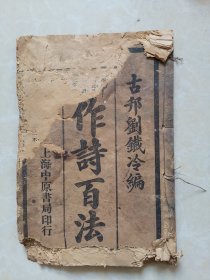 古邗劉鐵冷編
作詩百法
上海中原書局印行